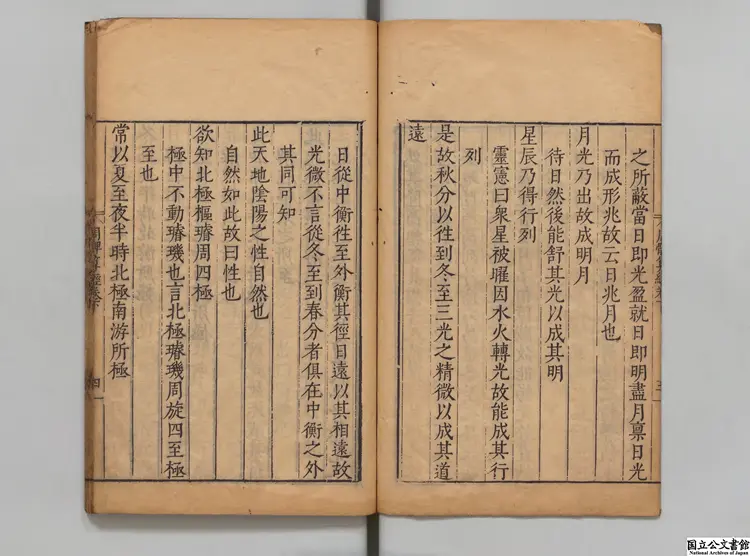 之所蔽當日即光盈就日即明盡月稟日光
而成形兆故云日兆月也
月光乃出故成明月
待日然後能舒其光以成其明
星辰乃得行列
靈憲曰衆星被曜因水火轉光故能成其行
列
是故秋分以徃到冬至三光之精微以成其道
遠
日從中衡徃至外衡其徑日遠以其相遠故
光微不言從冬至到春分者俱在中衡之外
其同可知
此天地陰陽之性自然也
自然如此故曰性也
欲知北極樞璿周四極
極中不動璿璣也言北極璿璣周旋四至極
至也
常以夏至夜半時北極南游所極
四
国立公文書館
National Archives of Japan